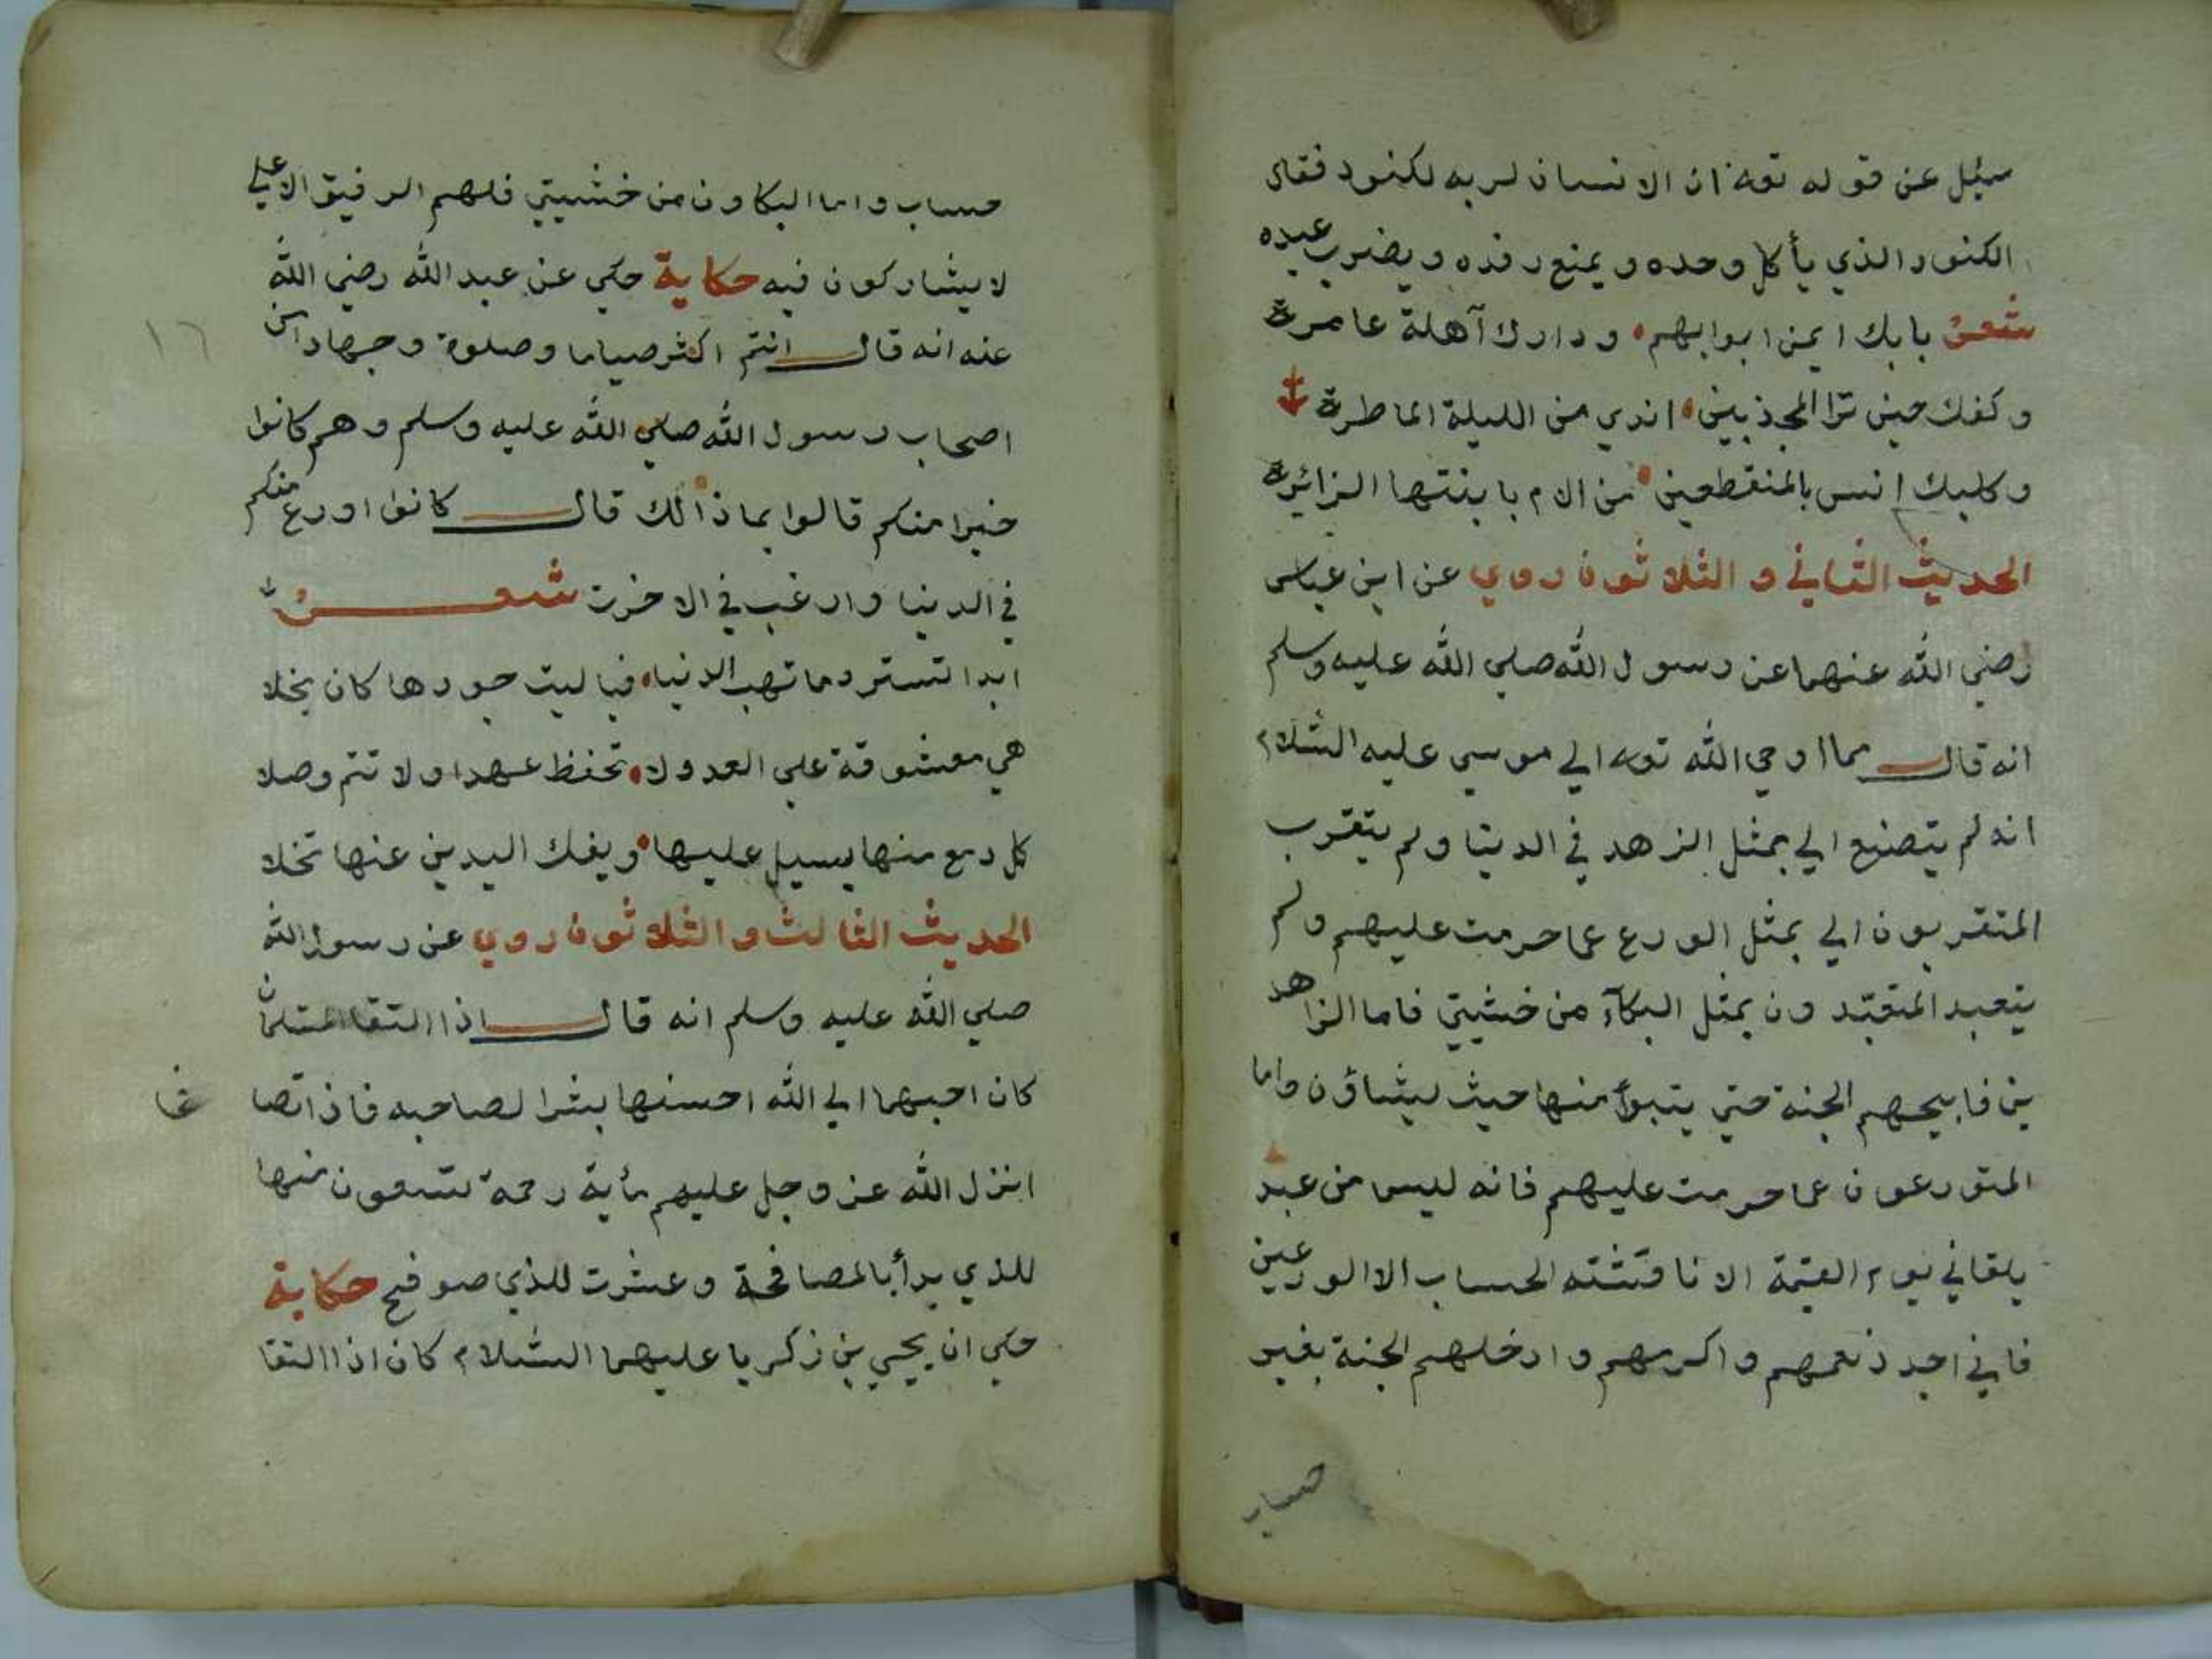 سئل عن قوله تعه ان الانسان لربه لكنود فقال
الكنود الذي يأكل وحده و يمنع رفده و يضرب عبده
شعر بابك ايمن ابوابهم ودارك آهلة عامرة
و كفك حين ترا المجذبين اندي من الليلة الماطرة
وكلبك انس بالمنقطعين من الام بابنتها الزائرة
الحديث الثاني و الثلاثون روي عن ابن عباس
رضي الله عنهما عن رسول الله صلي الله عليه وسلم
انه قال مما اوحي الله تعه الي موسي عليه السلام
انه لم يتصنع الي بمثل الزهد في الدنيا ولم يتقرب
المتقربون الي بمثل الورع عما حرمت عليهم ولم
يتعبد المتعبدون بمثل البكآء من خشيتي فاما الزاهد
ين فابيحهم الجنة حتي يتبوأ منها حيث يشاؤن واما
المتورعون عما حرمت عليهم فانه ليس من عبد
يلقاني يوم القيمة الا ناقشته الحساب الا الورعين
فاني اجد نعمهم واكرمهم وادخلهم الجنة بغير
حساب
حساب واما البكاون من خشيتي فلهم الرفيق الاعلي
لا يشاركون فيه حكاية حكي عن عبد الله رضي الله
عنه انه قال انتم اكثر صياما وصلوة وجهادا من
١٦
اصحاب رسول الله صلي الله عليه وسلم وهم كانوا
خيرا منكم قالوا بماذا لك قال كانوا اورع منكم
في الدنيا وارغب في الاخرت شعر
ابدا تسترد ما تهب الدنيا فيا ليت جودها كان بخلا
هي معشوقة علي الغدر لا تحفظ عهدا ولا تتم وصلا
كل دمع منها يسيل عليها ويفك اليدين عنها تخلا
الحديث الثالث و الثلاثون روي عن رسول الله
صلي الله عليه وسلم انه قال اذا التقا المسلمان
كان احبهما الي الله احسنها بشرا لصاحبه فاذا تصا
فحا
انزل الله عز وجل عليهم مأية رحمة تسعون منها
للذي بدأ بالمصافحة و عشرت للذي صوفح حكاية
حكي ان يحيي بن زكريا عليهما السلام كان اذا التقا